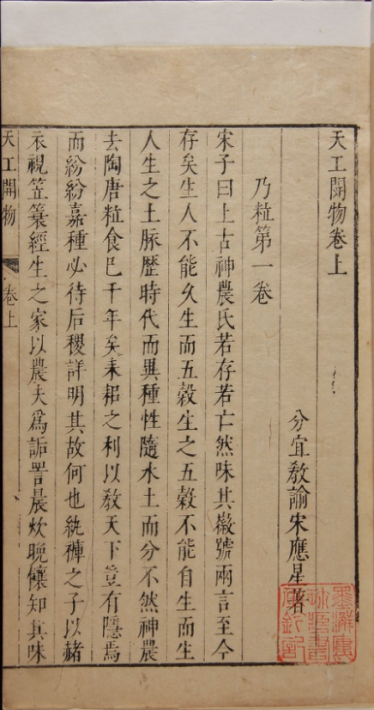 天工開物卷上
分宜敎諭宋應星著
乃粒第一卷
宋子曰上古神農氏若存若亡然味其徽號兩言至今
存矣生人不能久生而五穀生之五穀不能自生而生
人生之土脈歷時代而異種性隨水土而分不然神農
去陶唐粒食已千年矣耒耜之利以敎天下豈有隱焉
而紛紛嘉種必待后稷詳明其故何也紈褲之子以赭
衣視笠蓑經生之家以農夫爲詬詈晨炊晚饟知其味
天工開物
卷上